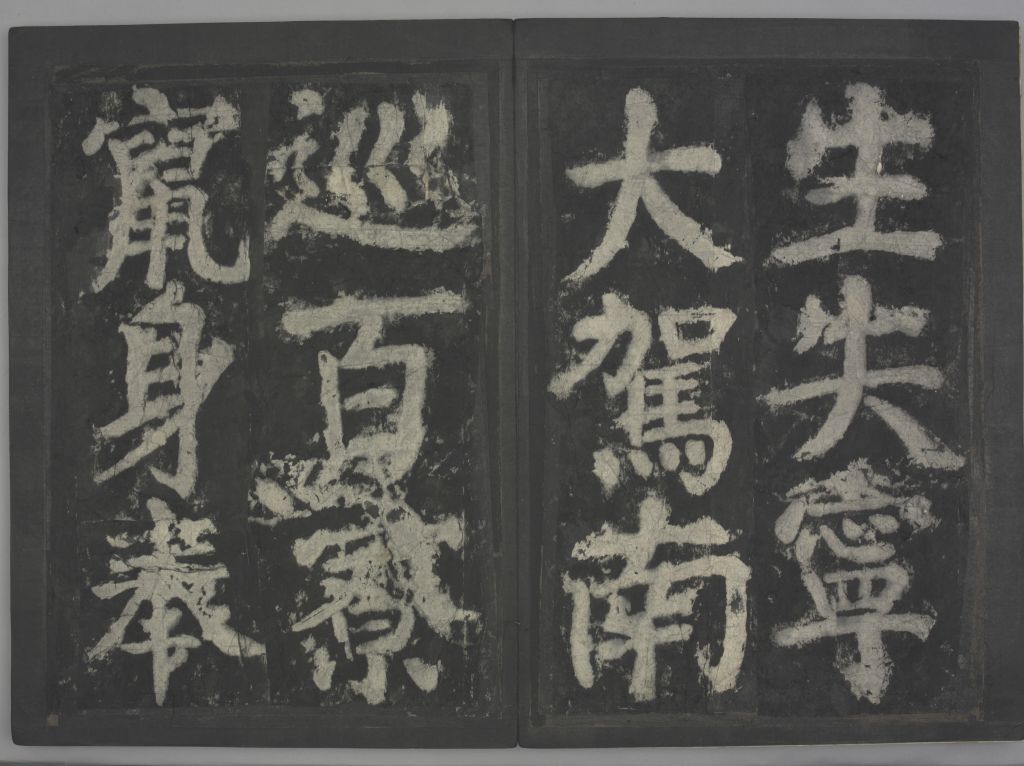 生失寧
大駕南
巡百寮
竄身奉